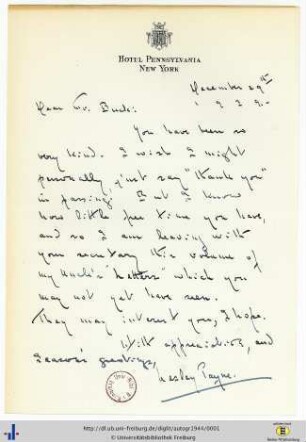 HOTEL PENNSYLVANIA
NEW YORK
December 29th
1939.
Dear Mr. Buck:
You have been so
very kind. I wish I might
personally just say "thank you"
in passing. But I know
how little free time you have,
and so I am leaving with
your secretary this volume of
my Uncle's "Letters" which you
may not yet have seen.
They may interest you, I hope.
With appreciation, and
Season's greetings,
Payne.
http://dl.ub.uni-freiburg.de/diglit/autogr1944/0001
© Universitätsbibliothek Freiburg